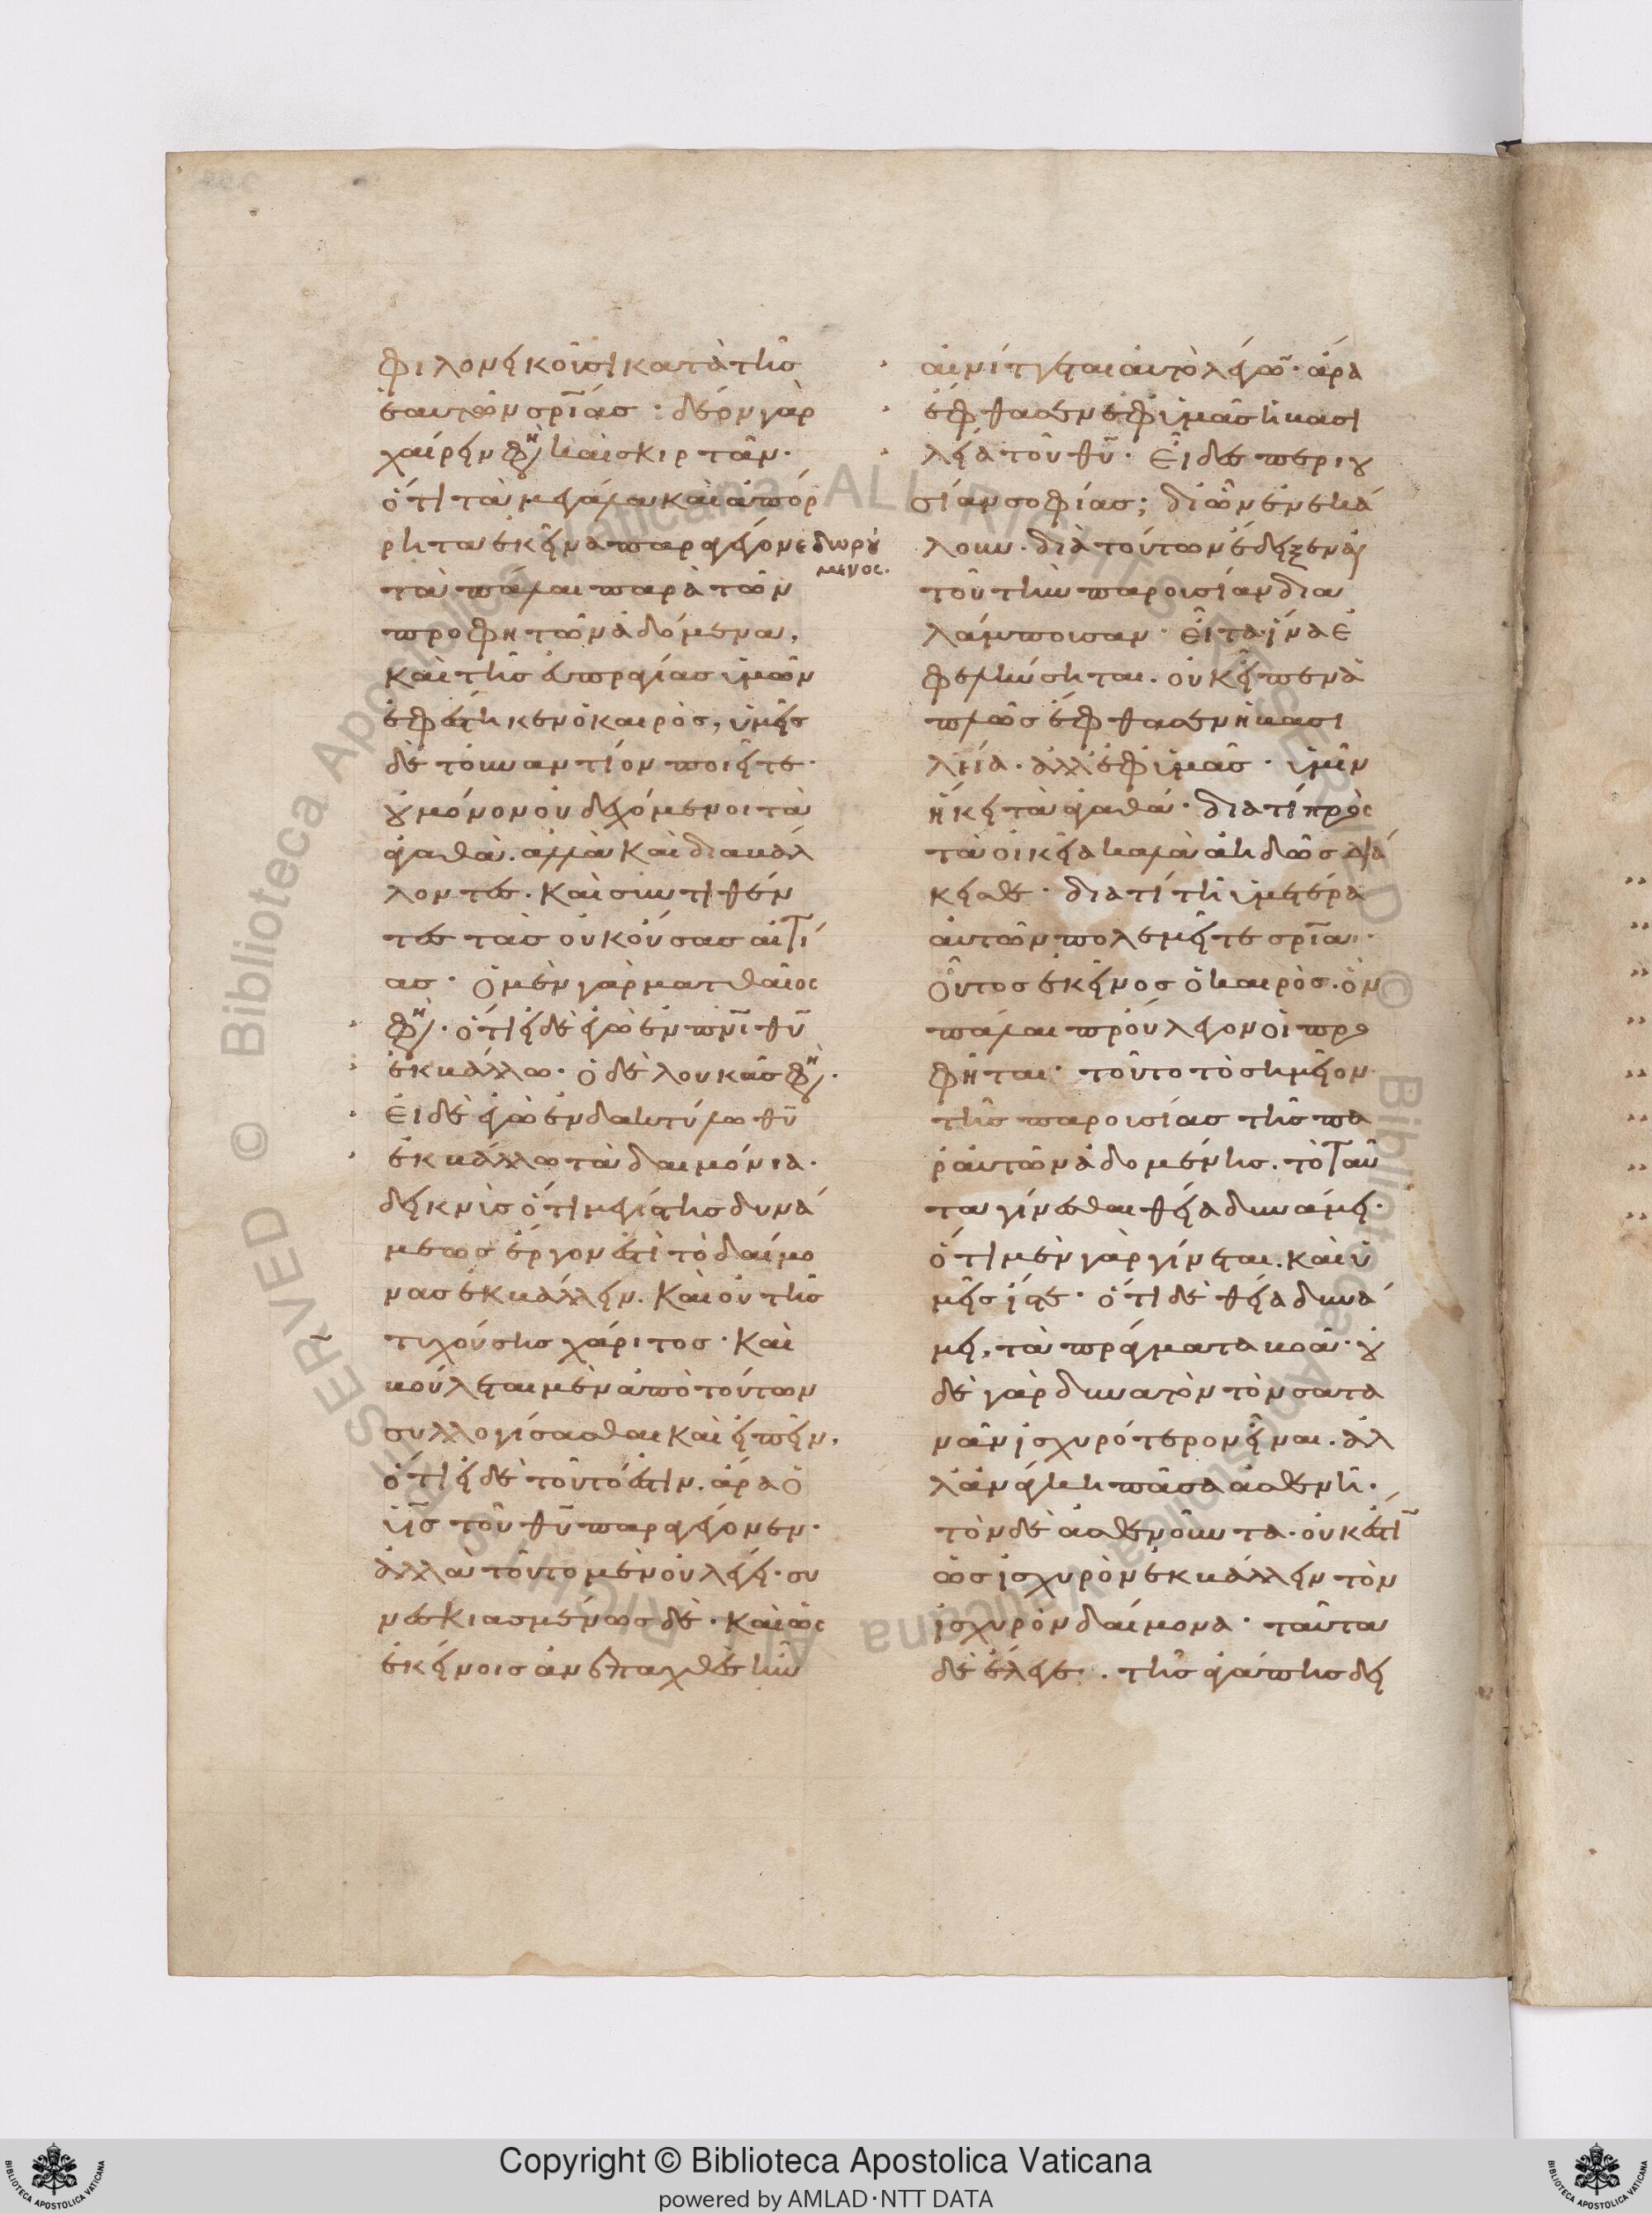 φιλονεικοῦσι κατὰ τῆς
ἑαυτῶν σρ̅ίας· δέον γὰρ
χαίρειν φη(σὶ) καὶ σκιρτᾶν·
ὅτι τὰ μεγάλα καὶ ἀπόρ
ρητα ἐκεῖνα παραγέγονε δωρού
μενος·
τὰ πάλαι παρὰ τῶν
προφητῶν ἀδόμενα,
καὶ τῆς εὐπραγίας ὑμῶν
ἐφέστηκεν ὁ καιρὸς, ὑμεῖς
δὲ τοὐναντίον ποιεῖτε·
οὐ μόνον οὐ δεχόμενοι τὰ
ἀγαθὰ. ἀλλὰ καὶ διαβάλ
λοντες. καὶ συντιθέν
τες τὰς οὐκ οὔσας αἰτί
ας· Ὁ μὲν γὰρ ματθαῖος
φη(σί)· ὅτι εἰ δὲ ἐγὼ ἐν πν̅ι θυ̅
ἐκβάλλω· ὁ δὲ λουκᾶς φη(σὶ)·
Εἰ δὲ ἐγὼ ἐν δακτύλω θυ̅
ἐκβάλλω τὰ δαιμόνια·
δεικνὺς ὅτι μεγίστης δυνά
μεως ἔργον ἐστὶ τὸ δαίμο
νας ἐκβάλλειν. καὶ οὐ τῆς
τυχούσης χάριτος· καὶ
βούλεται μὲν ἀπὸ τούτων
συλλογίσασθαι καὶ εἰπεῖν,
ὅτι εἰ δὲ τοῦτό ἐστιν. ἄρα ὁ
υι̅ς τοῦ θυ̅ παραγέγονεν·
ἀλλὰ τοῦτο μὲν οὐ λέγει· συ
νεσκιασμένως δὲ· καὶ ὡς
ἐκείνοις ἀνεπαχθὲς ἦν
αἰνίττεται αὐτὸ λέγων· ἄρα
ἔφθασεν ἐφ ὑμᾶς ἡ βασι
λεία τοῦ θυ̅· Εἶδες περιου
σίαν σοφίας; δι ὧν ἐνεκά
λουν· διὰ τούτων ἔδειξεν αὐ
τοῦ τὴν παρουσίαν δια
λάμπουσαν· Εἶτα ἵνα ἐ
φελκύσηται. οὐκ εἶπεν ἁ
πλῶς ἔφθασεν ἡ βασι
λεία· ἀλλ ἐφ ὑμᾶς· ὑμῖν
ἥκει τὰ ἀγαθά· διατί πρὸς
τὰ οἰκεῖα καλὰ ἀηδῶς διά
κεισθε· διατί τῆ ὑμετέρα
αὐτῶν πολεμεῖτε σρ̅ία·
Οὗτος ἐκεῖνος ὁ καιρὸς. ὃν
πάλαι προὔλεγον οἱ προ
φῆται· τοῦτο τὸ σημεῖον
τῆς παρουσίας τῆς πα
ρ αὐτῶν ἀδομένης. τὸ ταῦ
τα γίνεσθαι θεία δυνάμει·
ὅτι μὲν γὰρ γίνεται. καὶ ὑ
μεῖς ἴστε· ὅτι δὲ θεία δυνά
μει, τὰ πράγματα βοᾶ· οὐ
δὲ γὰρ δυνατὸν τὸν σατα
νᾶν ἰσχυρότερον εἶναι. ἀλ
λ ἀνάγκη πᾶσα ἀσθενῆ·
τὸν δὲ ἀσθενοῦντα· οὐκ ἔστι̅
ὡς ἰσχυρὸν ἐκβάλλειν τὸν
ἰσχυρὸν δαίμονα· ταῦτα
δὲ ἔλεγε. τῆς ἀγάπης δει
Copyright © Biblioteca Apostolica Vaticana
powered by AMLAD·NTT DATA